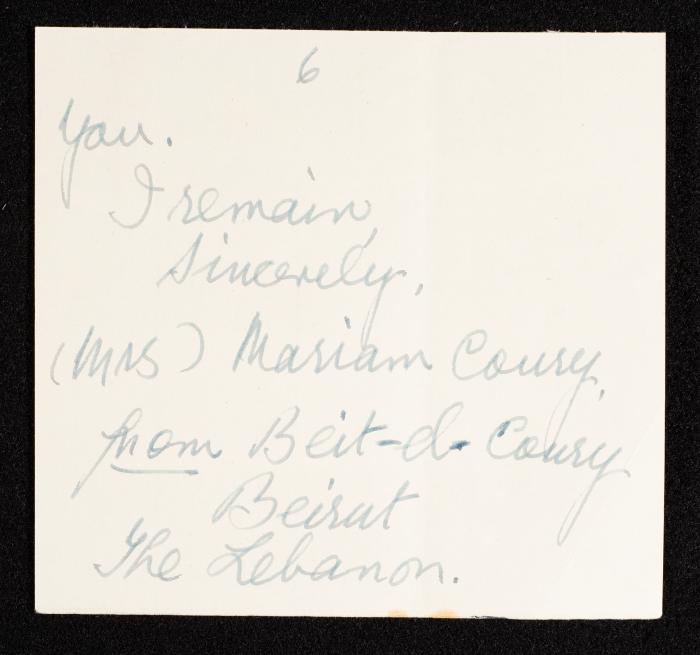 6
you.
I remain,
Sincerely,
(Mrs) Mariam Coury,
from Beit-el-Coury
Beirut
The Lebanon.